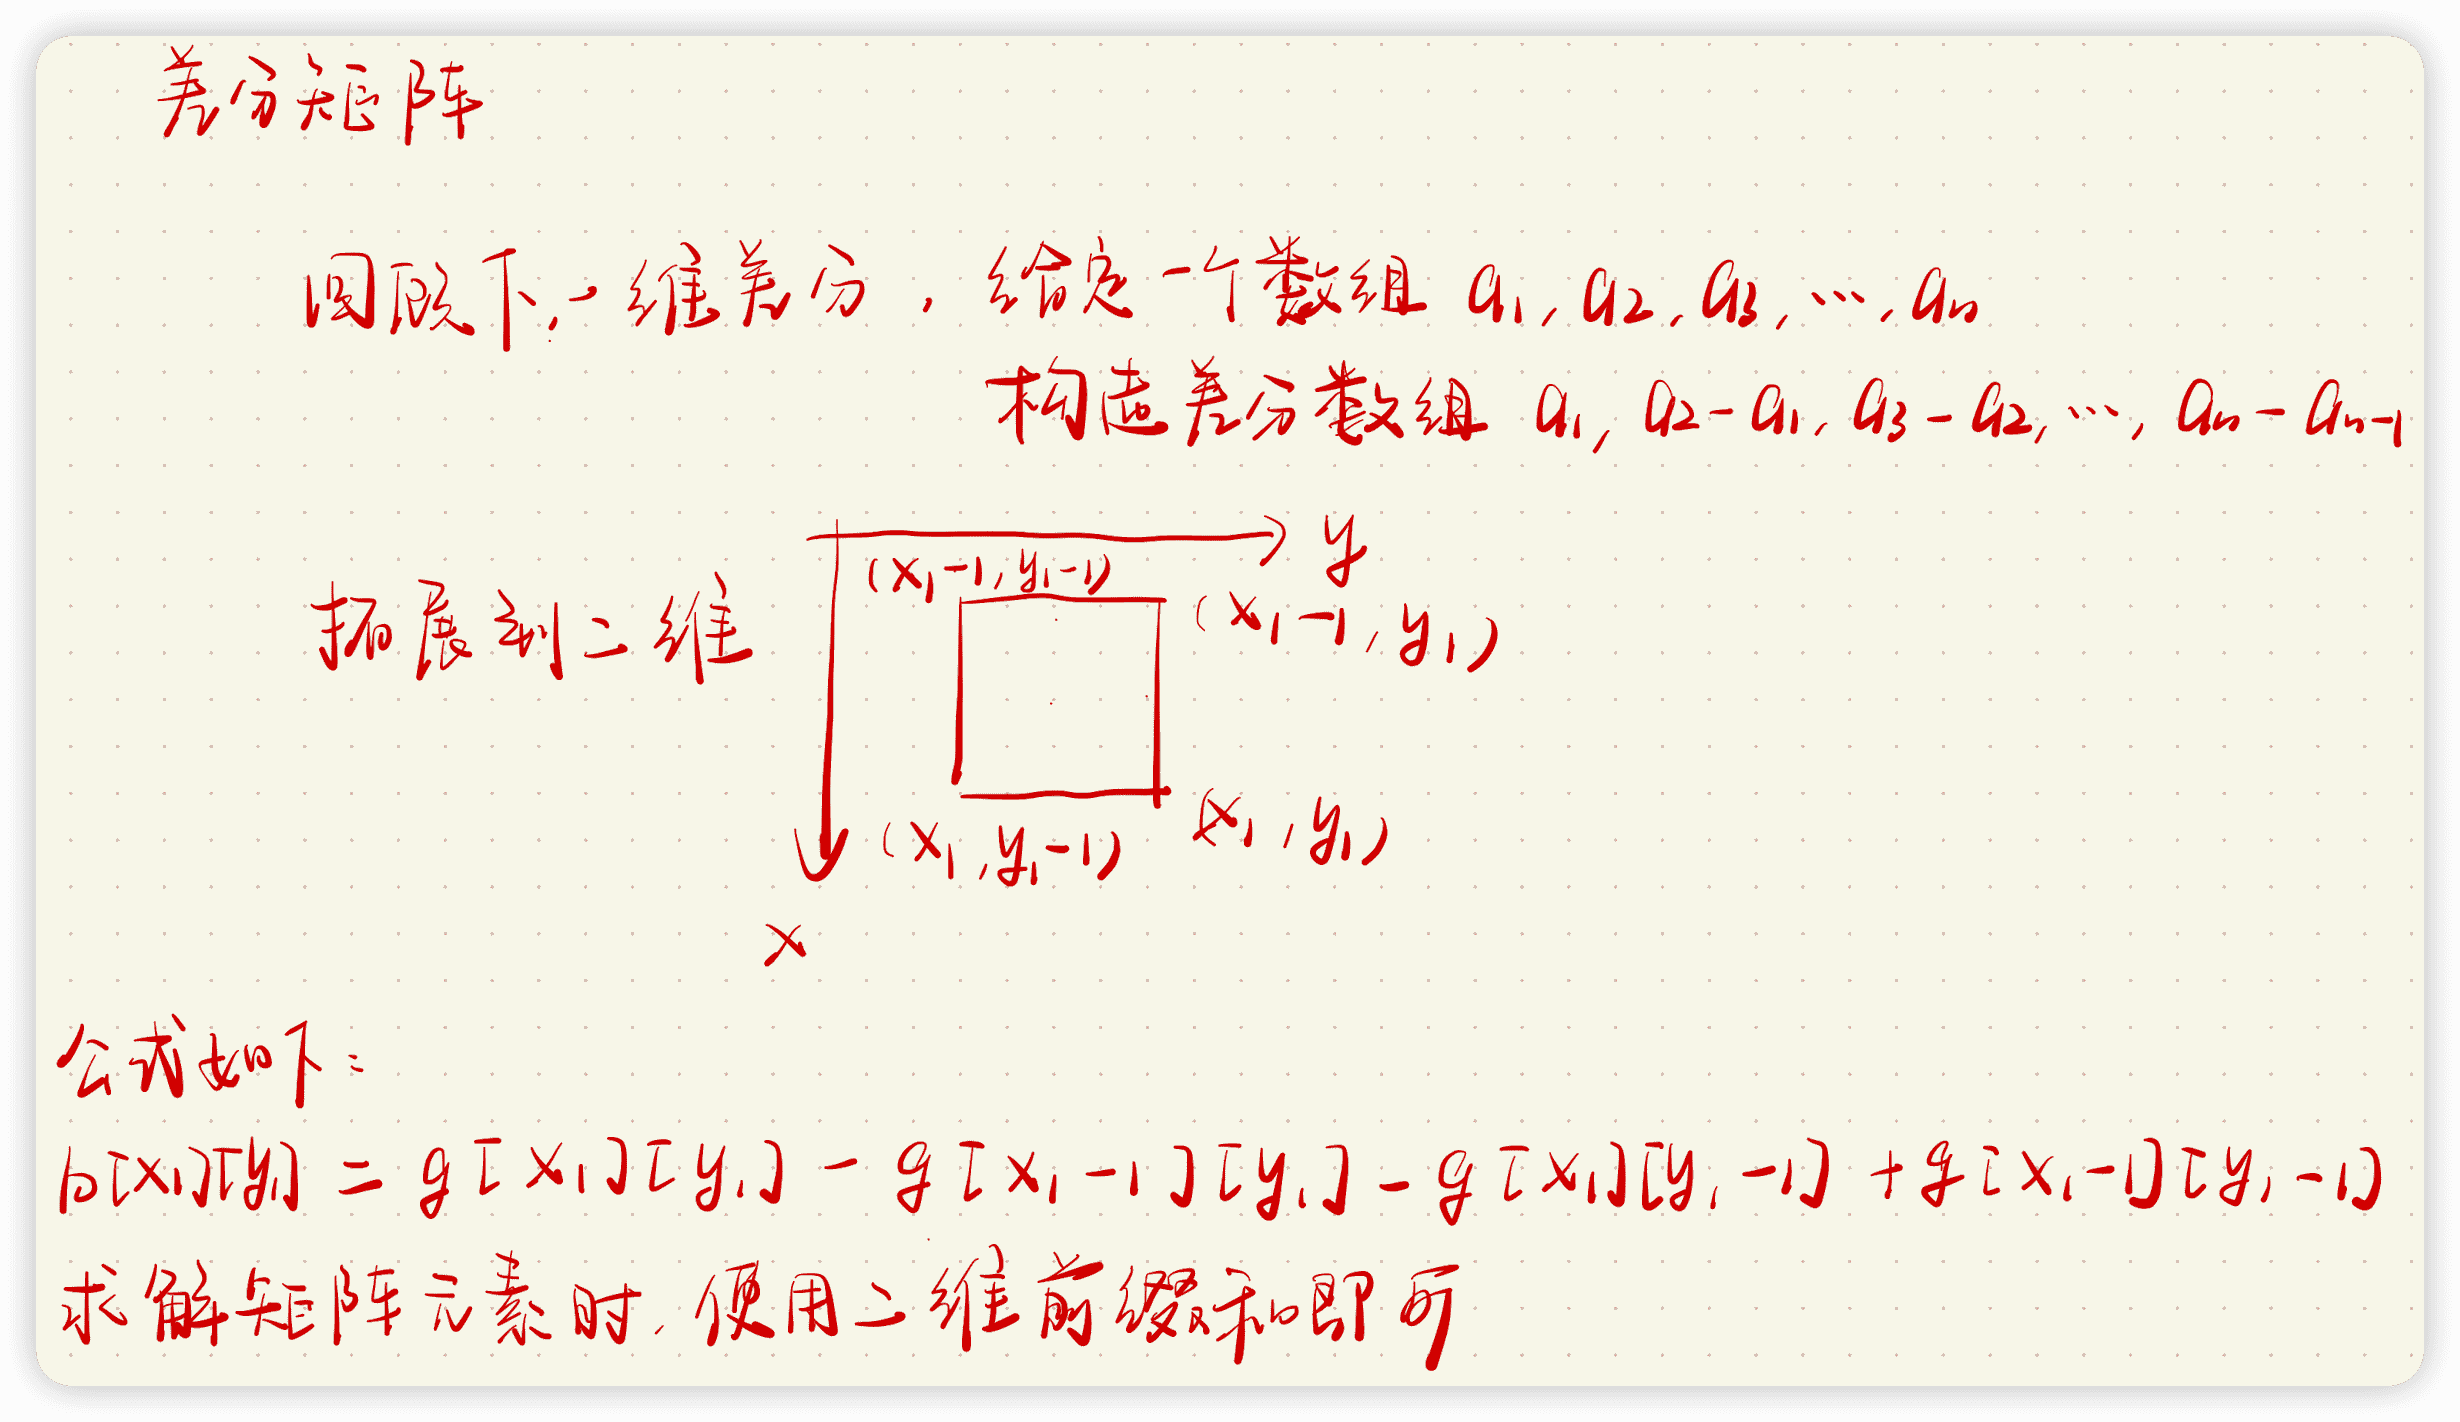 差分矩阵
回顾下,一维差分,给定一个数组 a₁, a₂, a₃, ⋯, aₙ
构造差分数组 a₁, a₂-a₁, a₃-a₂, ⋯, aₙ-aₙ₋₁
y
(x₁-1, y₁-1)
(x₁-1, y₁)
拓展到二维
(x₁, y₁-1)
(x₁, y₁)
x
公式如下:
b[x₁][y₁] = g[x₁][y₁] - g[x₁-1][y₁] - g[x₁][y₁-1] + g[x₁-1][y₁-1]
求解矩阵元素时,使用二维前缀和即可